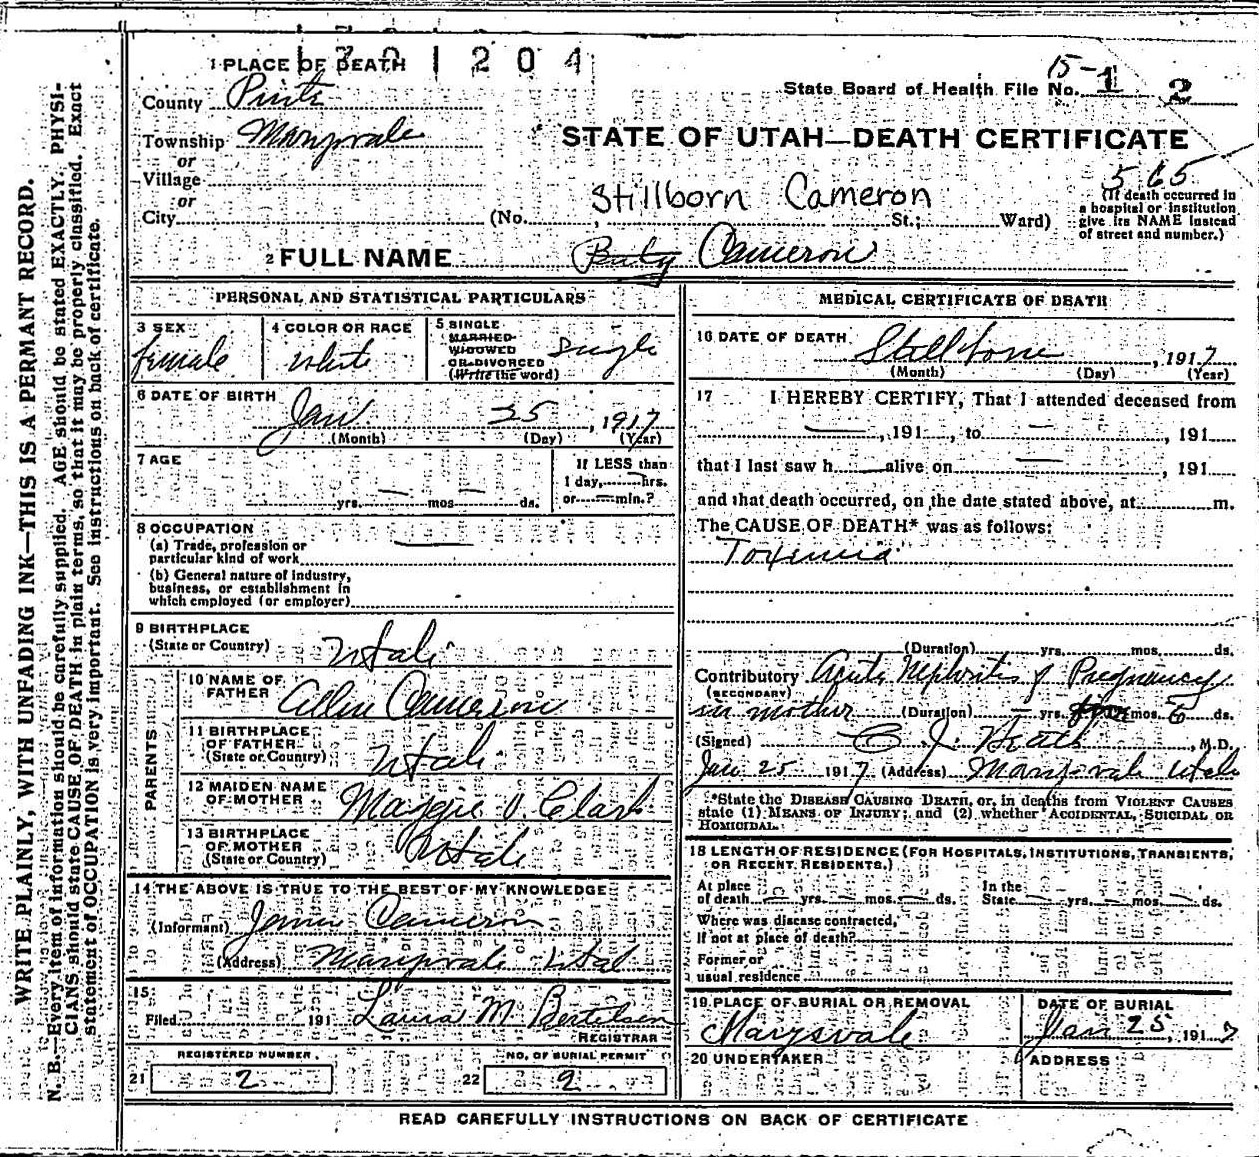 1701204
1 PLACE OF DEATH
15-1 2
State Board of Health File No.
County Piute
Township Marysvale
STATE OF UTAH—DEATH CERTIFICATE
or
Village
or
565
Stillborn Cameron
City (No. St.; Ward)
(If death occurred in
a hospital or institution
give its NAME instead
of street and number.)
2 FULL NAME Baby Cameron
PERSONAL AND STATISTICAL PARTICULARS
3 SEX female
4 COLOR OR RACE white
5 SINGLE
MARRIED
WIDOWED
OR DIVORCED
(Write the word) Single
6 DATE OF BIRTH
Jan. 25, 1917
(Month) (Day) (Year)
7 AGE
yrs. — mos — ds.
If LESS than
1 day, hrs.
or min.?
8 OCCUPATION
(a) Trade, profession or
particular kind of work
(b) General nature of industry,
business, or establishment in
which employed (or employer)
9 BIRTHPLACE
(State or Country) Utah
PARENTS
10 NAME OF
FATHER Allen Cameron
11 BIRTHPLACE
OF FATHER
(State or Country) Utah
12 MAIDEN NAME
OF MOTHER Maggie V. Clark
13 BIRTHPLACE
OF MOTHER
(State or Country) Utah
14 THE ABOVE IS TRUE TO THE BEST OF MY KNOWLEDGE
(Informant) Cameron
(Address) Marysvale Utah
15
Filed 191 Laura M Bertelsen
REGISTRAR
REGISTERED NUMBER
21 2
NO. OF BURIAL PERMIT
22 2
MEDICAL CERTIFICATE OF DEATH
16 DATE OF DEATH
Stillborn, 1917
(Month) (Day) (Year)
17 I HEREBY CERTIFY, That I attended deceased from
—, 191, to —, 191
that I last saw h — alive on —, 191
and that death occurred, on the date stated above, at m.
The CAUSE OF DEATH* was as follows:
Toxemia
(Duration) yrs. mos. ds.
Contributory Acute Nephritis of Pregnancy
(SECONDARY)
in mother (Duration) — yrs. mos. 6 ds.
(Signed) C. J. , M.D.
Jan 25 1917 (Address) Marysvale Utah
*State the DISEASE CAUSING DEATH, or, in deaths from VIOLENT CAUSES
state (1) MEANS OF INJURY; and (2) whether ACCIDENTAL, SUICIDAL OR
HOMICIDAL.
18 LENGTH OF RESIDENCE (FOR HOSPITALS, INSTITUTIONS, TRANSIENTS,
OR RECENT RESIDENTS.)
At place
of death — yrs. — mos. — ds.
In the
State — yrs. — mos. — ds.
Where was disease contracted,
If not at place of death?
Former or
usual residence
19 PLACE OF BURIAL OR REMOVAL
Marysvale
DATE OF BURIAL
Jan 25, 1917
20 UNDERTAKER
ADDRESS
READ CAREFULLY INSTRUCTIONS ON BACK OF CERTIFICATE
WRITE PLAINLY, WITH UNFADING INK—THIS IS A PERMANT RECORD.
N. B.—Every item of information should be carefully supplied. AGE should be stated EXACTLY. PHYSI-
CIANS should state CAUSE OF DEATH in plain terms, so that it may be properly classified. Exact
statement of OCCUPATION is very important. See instructions on back of certificate.